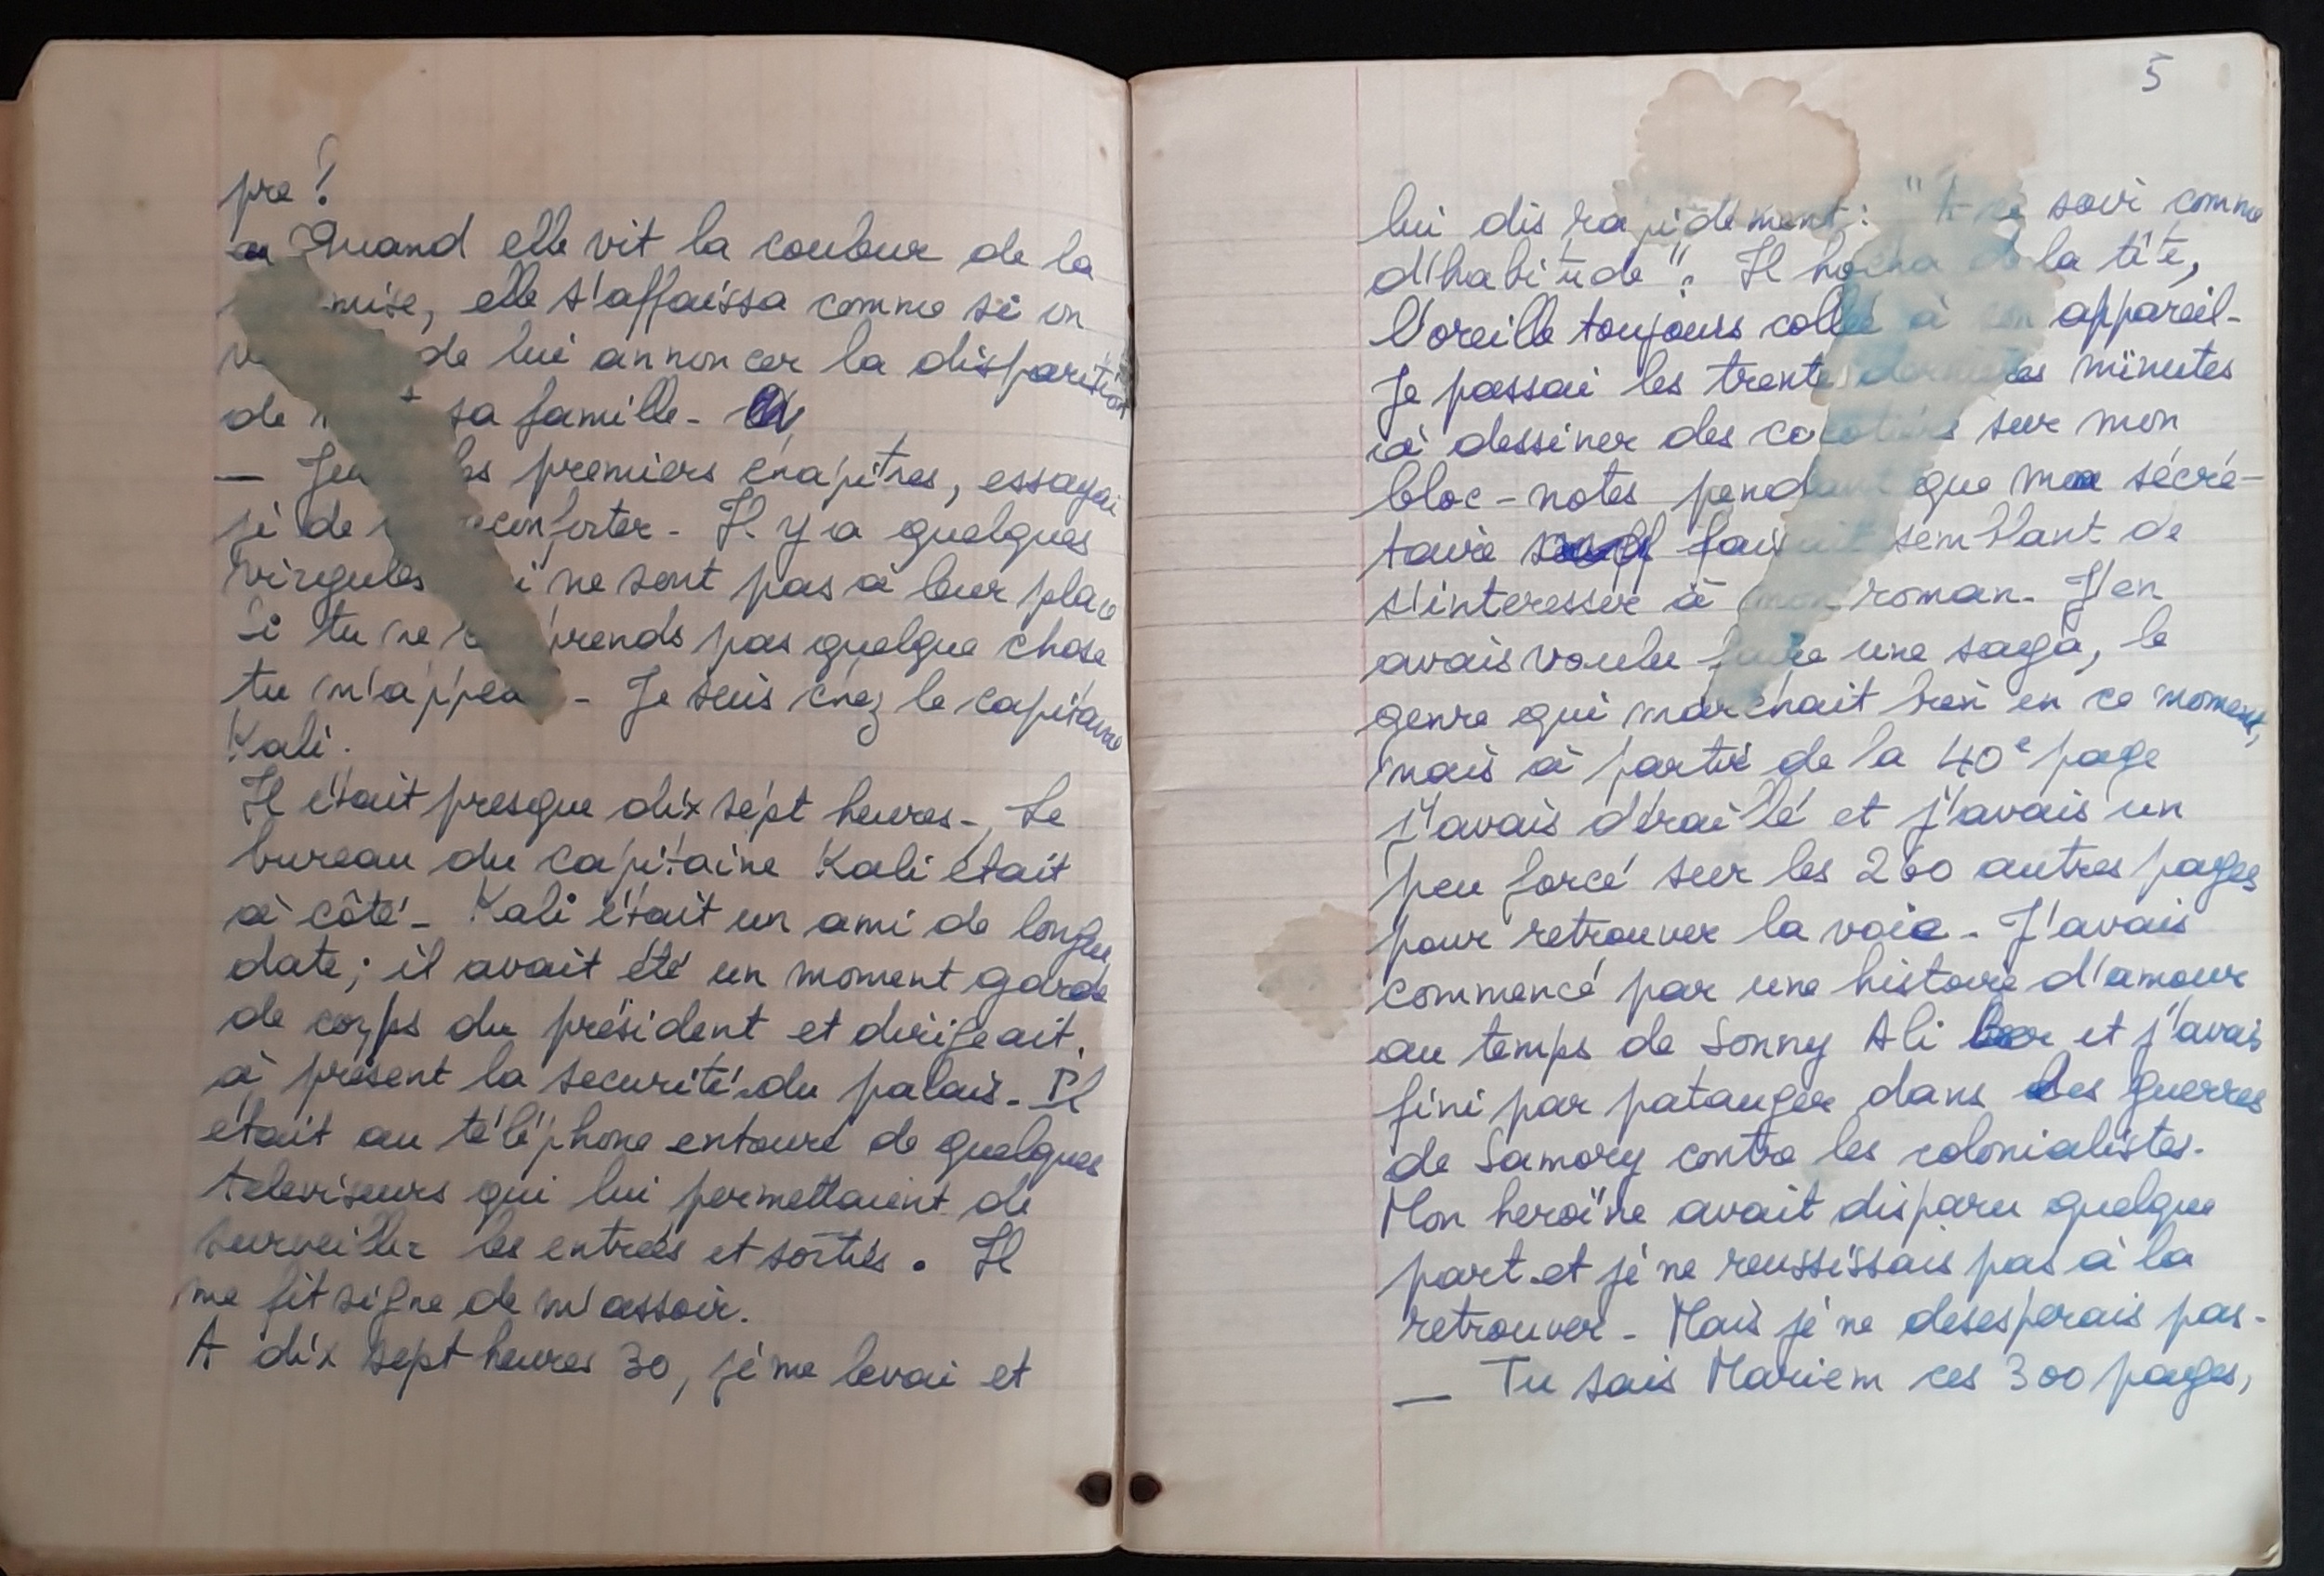 pre !
Quand elle vit la couleur de la
mise, elle s'affaissa comme si on
de lui annoncer la disparition
de sa famille.
— premiers chapitres, essayai
je de reconforter. Il y a quelques
virgules qui ne sont pas à leur place
Si tu ne comprends pas quelque chose
tu m'appelles. Je suis chez le capitaine
Kali.
Il était presque dix sept heures. Le
bureau du capitaine Kali était
à côté. Kali était un ami de longue
date ; il avait été un moment garde
de corps du président et dirigeait
à présent la securité du palais. Il
était au téléphone entouré de quelques
televiseurs qui lui permettaient de
surveiller les entrées et sorties. Il
me fit signe de m'assoir.
A dix sept heures 30, je me levai et
5
lui dis rapidement : " A ce soir comme
d'habitude ". Il hocha de la tête,
l'oreille toujours collée à son appareil.
Je passai les trente dernières minutes
à dessiner des sur mon
bloc-notes pendant que ma sécré-
taire faisait semblant de
s'interesser à mon roman. J'en
avais voulu faire une saga, le
genre qui marchait bien en ce moment,
mais à partir de la 40e page
j'avais déraillé et j'avais un
peu forcé sur les 260 autres pages
pour retrouver la voie. J'avais
commencé par une histoire d'amour
au temps de Sonny Ali ber et j'avais
fini par patauger dans les guerres
de Samory contre les colonialistes.
Mon heroïne avait disparu quelque
part et je ne reussissais pas à la
retrouver. Mais je ne desesperais pas.
— Tu sais Mariem ces 300 pages,